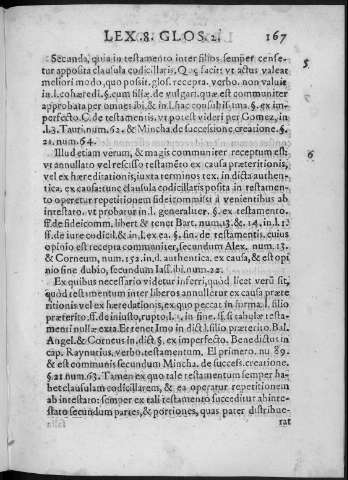 LEX. 8. GLOS 2. 167
Secunda, quia in testamento inter filios semper cense-
tur apposita clausula codicillaris. Quę facit: vt actus valeat
meliori modo, quo possit. glos. recepta. verbo. non valuit
in l. cohæredi. §. cum filiæ. de vulgari. quæ est communiter
approbata per omnes ibi, & in l. hac consultissima. §. ex im-
perfecto. C. de testamentis. vt potest videri per Gomez, in
l. 3. Tauri. num. 62. & Mincha. de successione creatione. §.
21. num. 64.
5
Illud etiam verum, & magis communiter receptum est:
vt annullato vel rescisso testamēto ex causa præteritionis,
vel ex hæreditationis, iuxta terminos tex. in dicta authen-
tica. ex causa: tunc clausula codicillaris posita in testamen-
to operetur repetitionem fideicommissi à venientibus ab
intestato. vt probatur in l. generaliter. §. ex testamento.
ff. de fideicomm. libert & tenet Bart. num. 13. & 14. in l. 1.
ff. de iure codicil. & in l. ex ea. §. fin. de testamentis. cuius
opinio est recepta communiter, secundum Alex. num. 13.
& Corneum, num. 152. in d. authentica. ex causa, & est opi
nio sine dubio, secundum Iass. ibi. num. 22.
6
Ex quibus necessario videtur inferri, quòd licet verū sit,
quòd testamentum inter liberos annulletur ex causa præte
ritionis vel ex hæredationis, ex quo peccat in forma l. filio
præterito. ff. de iniusto, rupto, l. 1, in fine. ff. si tabulæ testa-
menti nullæ exta. Et tenet Imo in dict. l. filio præterito. Bal.
Angel. & Corneus in dict. §. ex imperfecto. Benedictus in
cap. Raynutius. verbo. testamentum. El primero. nu 89.
& est communis secundum Mincha. de success. creatione.
§. 21. num. 63. Tamen ex quo tale testamentum semper ha-
bet clausulam codicillarem, & ea operatur repetitionem
ab intestato: semper ex tali testamento succeditur ab inte-
stato secundum partes, & portiones, quas pater distribue-
rat